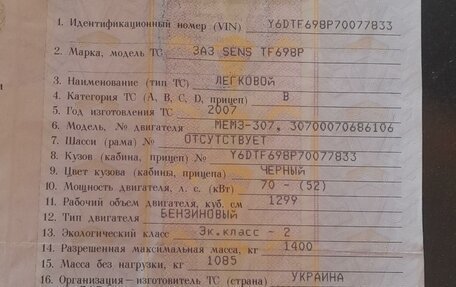 1. Идентификационный номер (VIN) Y6DTF698P70077833
2. Марка, модель ТС ЗАЗ SENS TF698P
3. Наименование (тип ТС) ЛЕГКОВОЙ
4. Категория ТС (A, B, C, D, прицеп) B
5. Год изготовления ТС 2007
6. Модель, № двигателя МЕМЗ-307, 30700070686106
7. Шасси (рама) № ОТСУТСТВУЕТ
8. Кузов (кабина, прицеп) № Y6DTF698P70077833
9. Цвет кузова (кабины, прицепа) ЧЕРНЫЙ
10. Мощность двигателя, л. с. (кВт) 70 - (52)
11. Рабочий объем двигателя, куб. см 1299
12. Тип двигателя БЕНЗИНОВЫЙ
13. Экологический класс Эк.класс - 2
14. Разрешенная максимальная масса, кг 1400
15. Масса без нагрузки, кг 1085
16. Организация—изготовитель ТС (страна) УКРАИНА